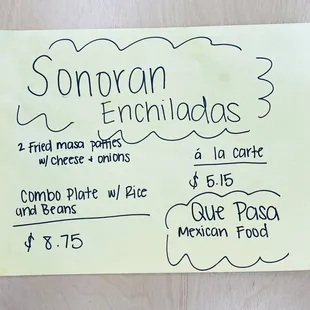 Sonoran
Enchiladas
2 Fried masa patties
w/ cheese + onions
á la carte
$ 5.15
Combo Plate w/ Rice
and Beans
$ 8.75
Que Pasa
Mexican Food